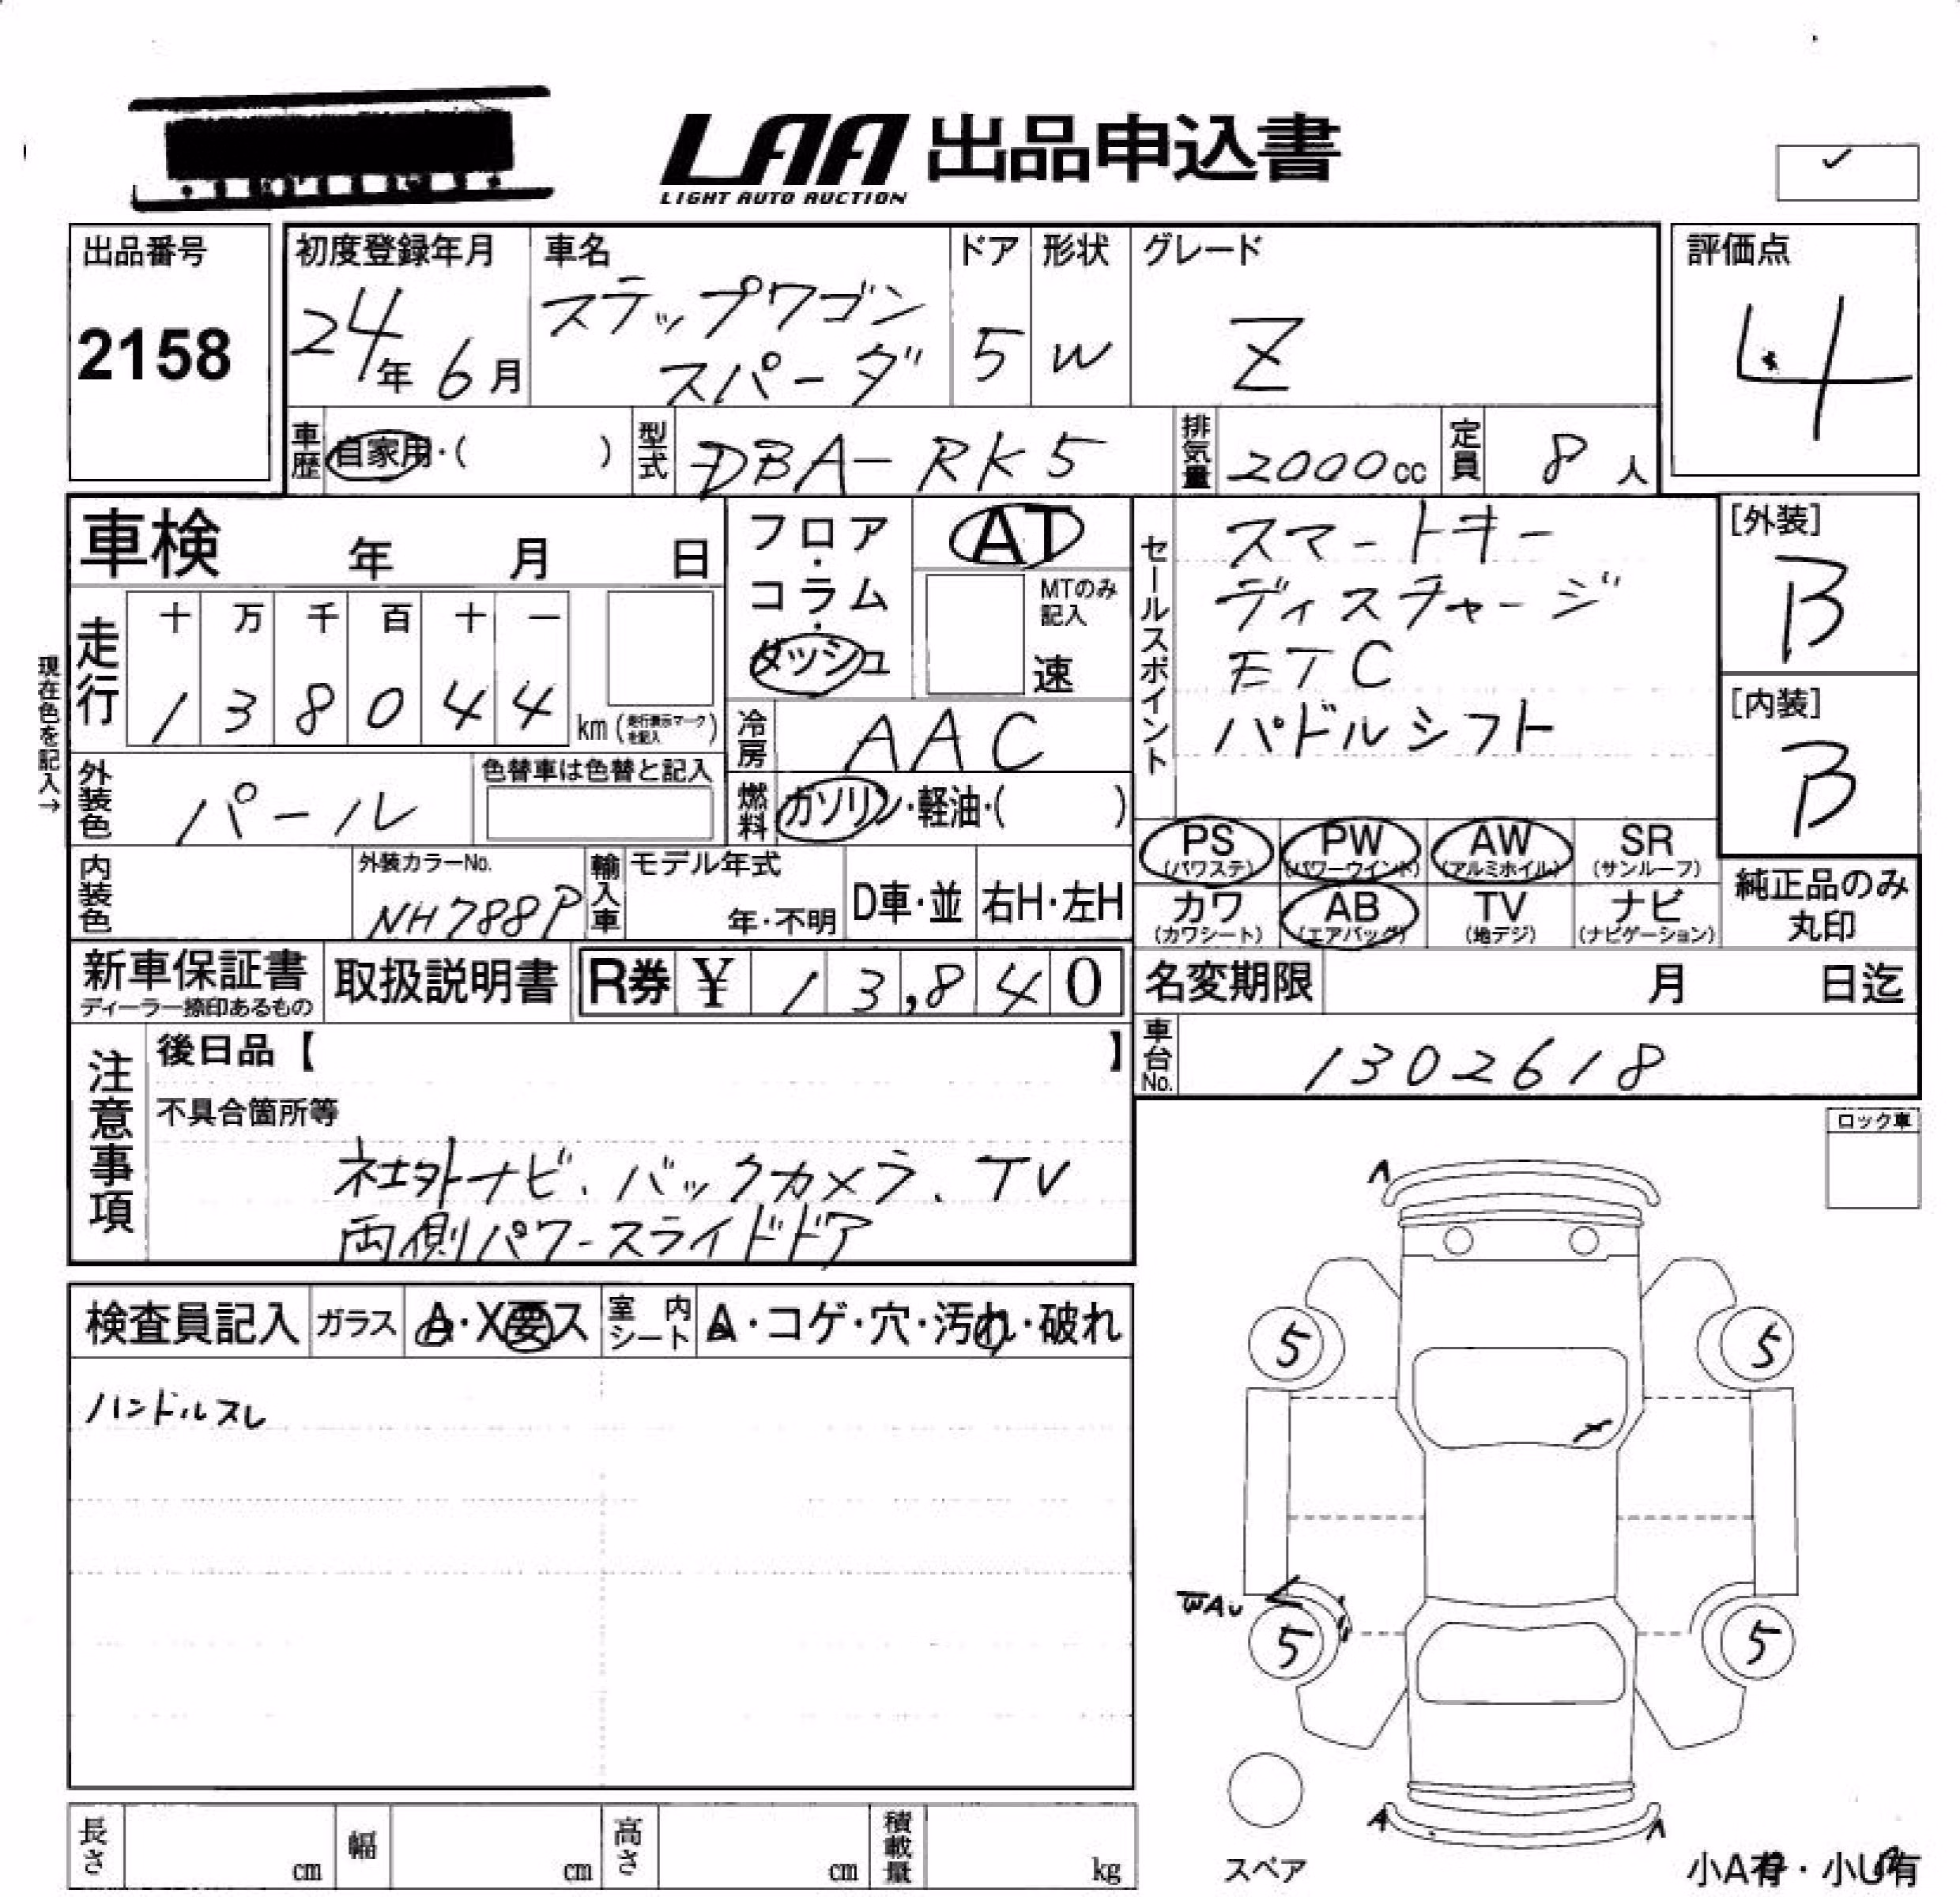 LAA 出品申込書
LIGHT AUTO AUCTION
✓
出品番号
2158
初度登録年月
24年 6月
車名
ステップワゴン
スパーダ
ドア
5
形状
W
グレード
Z
評価点
4
車歴
自家用・( )
型式
DBA-RK5
排気量
2000cc
定員
8人
車検 年 月 日
フロア・コラム・ダッシュ
AT
MTのみ記入
速
セールスポイント
スマートキー
ディスチャージ
ETC
パドルシフト
[外装]
B
[内装]
B
現在色を記入→
走行
十 万 千 百 十 一
1 3 8 0 4 4 km (走行表示マークを記入)
冷房
AAC
外装色
パール
色替車は色替と記入
燃料
ガソリン・軽油・( )
PS (パワステ)
PW (パワーウインド)
AW (アルミホイル)
SR (サンルーフ)
カワ (カワシート)
AB (エアバッグ)
TV (地デジ)
ナビ (ナビゲーション)
純正品のみ
丸印
内装色
外装カラーNo.
NH788P
輸入車
モデル年式
年・不明
D車・並
右H・左H
新車保証書
ディーラー捺印あるもの
取扱説明書
R券 ¥ 13,840
名変期限 月 日迄
車台No.
1302618
注意事項
後日品【 】
不具合箇所等
社外ナビ、バックカメラ、TV
両側パワースライドドア
ロック車
検査員記入
ガラス
A・X要ス
室内シート
A・コゲ・穴・汚れ・破れ
ハンドルスレ
A
5 5
WAU
5 5
A A
スペア
小A有・小U有
長さ cm
幅 cm
高さ cm
積載量 kg